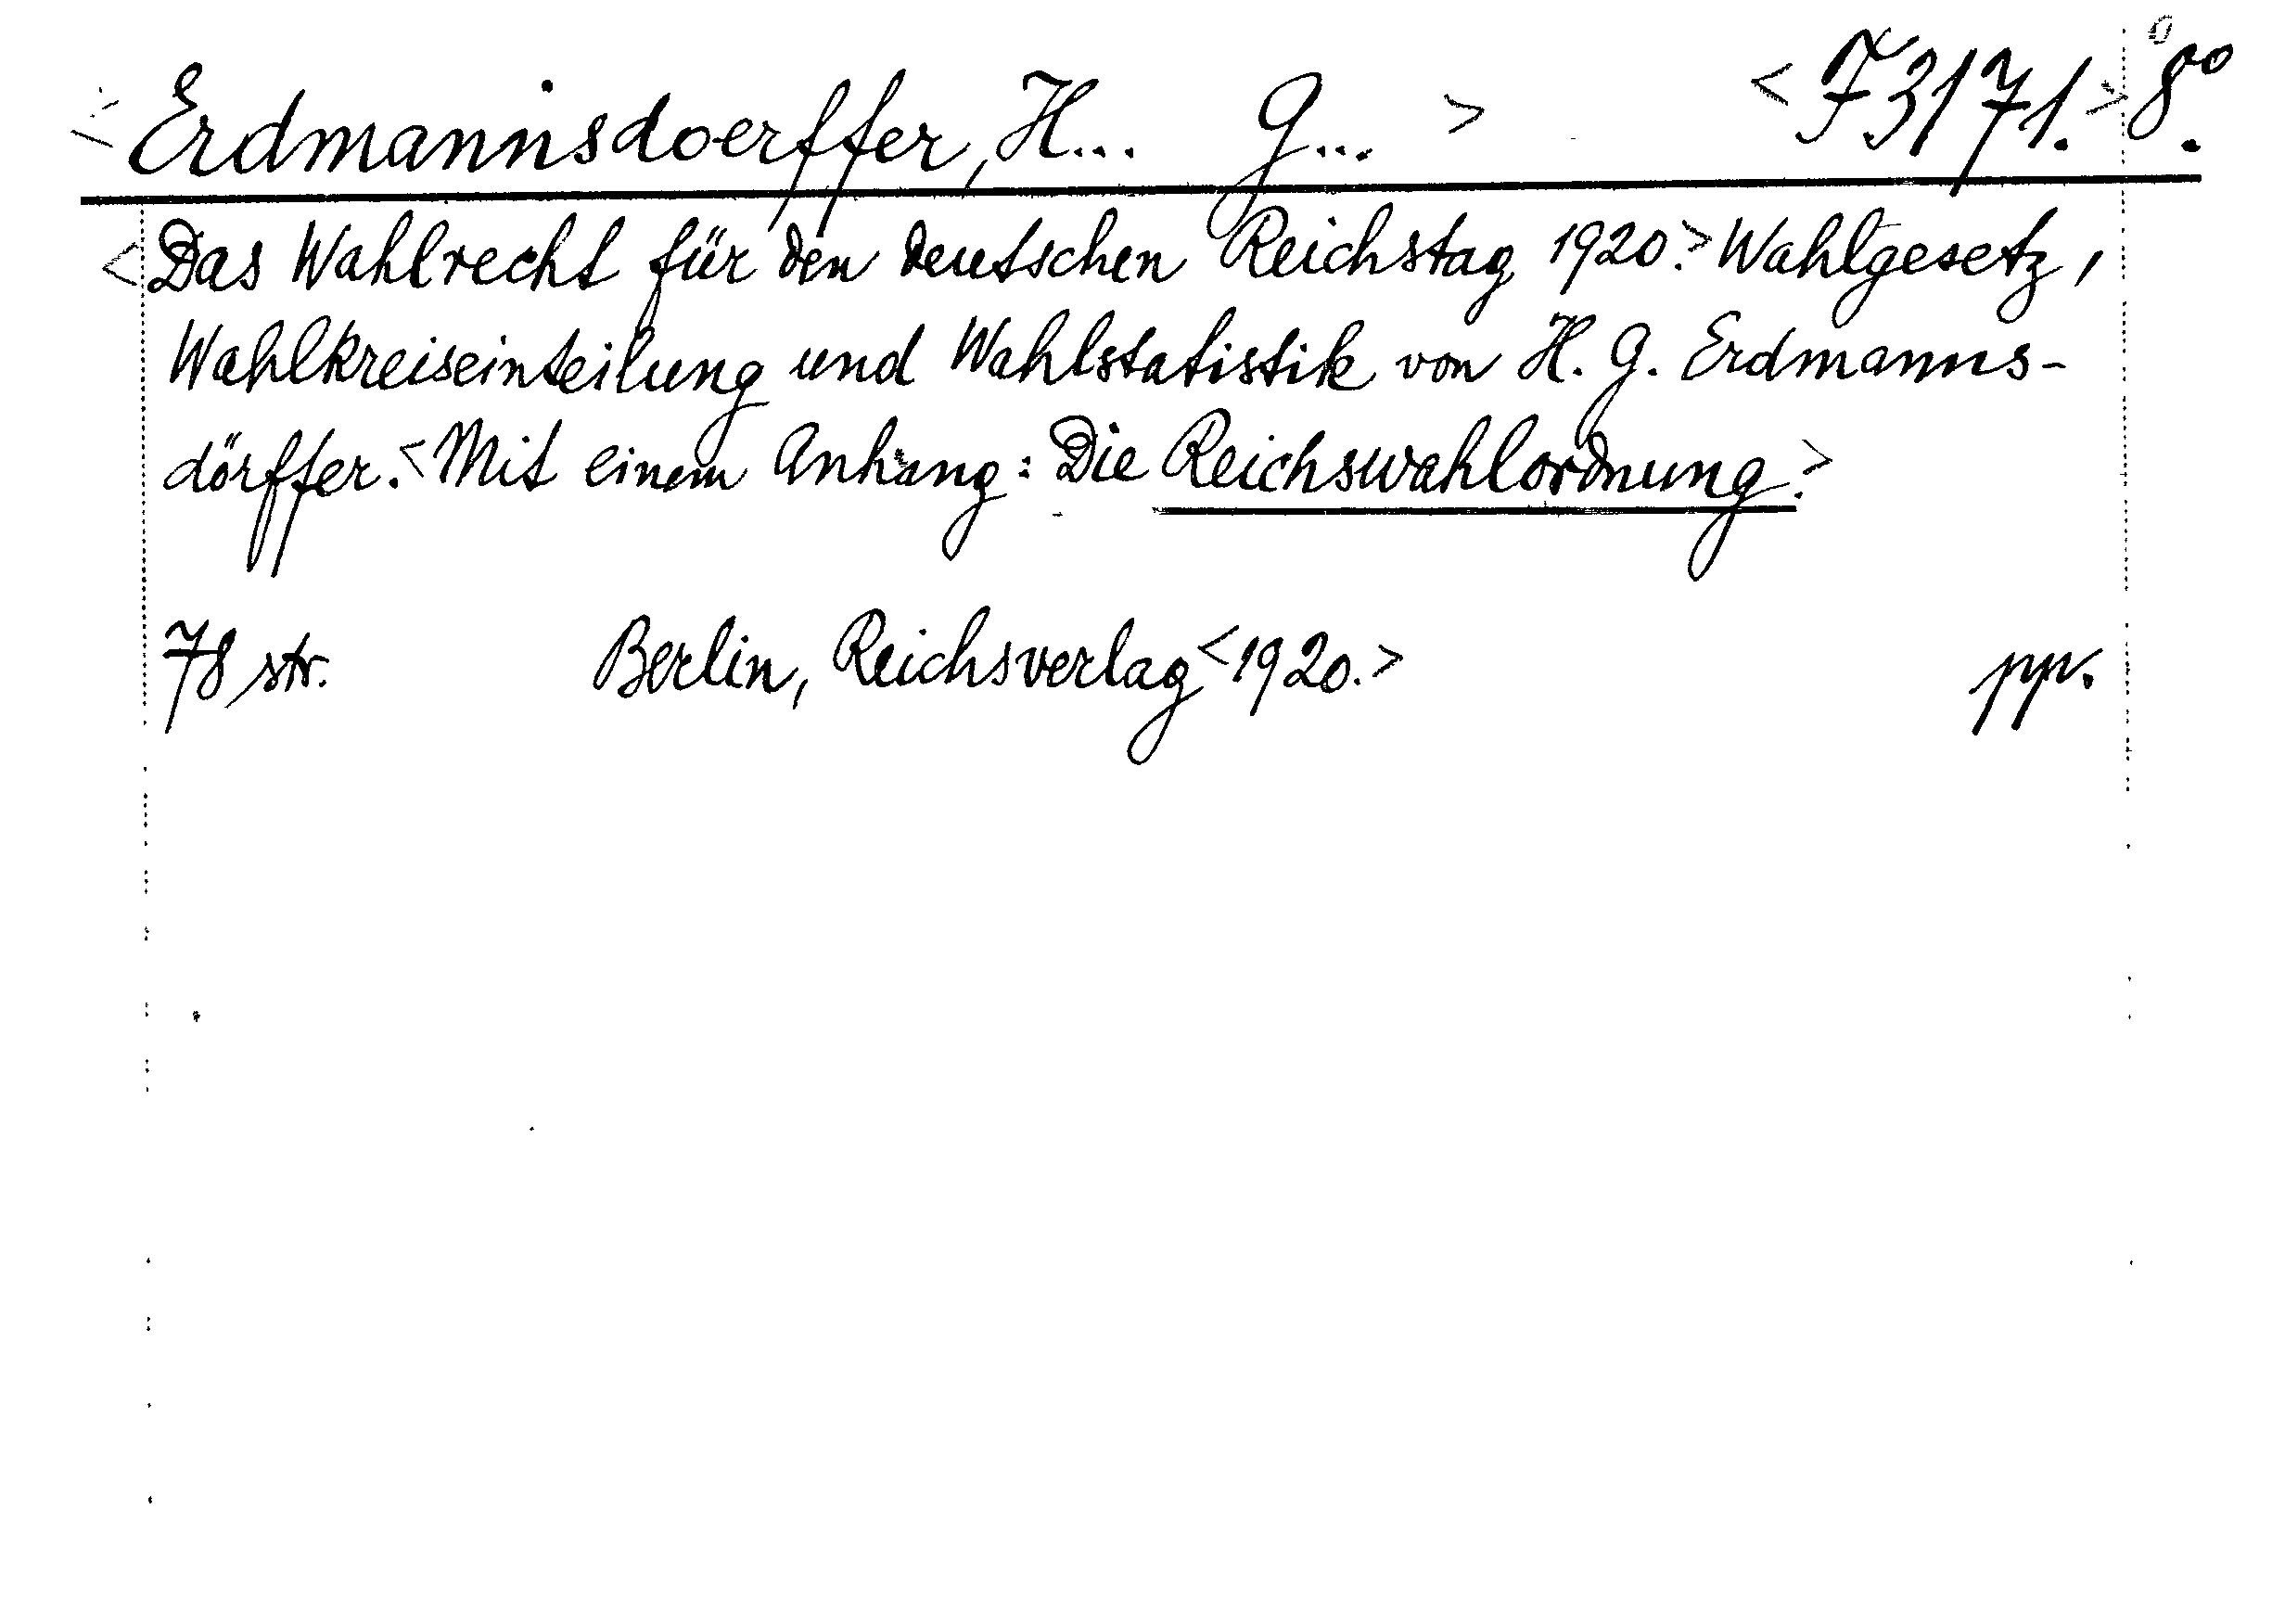 <Erdmannsdoerffer, H... G...> <F3171.> 8º.
<Das Wahlrecht für den deutschen Reichstag 1920.> Wahlgesetz,
Wahlkreiseinteilung und Wahlstatistik von H. G. Erdmanns-
dörffer. <Mit einem Anhang: Die Reichswahlordnung.>
78 str. Berlin, Reichsverlag <1920.> ppr.